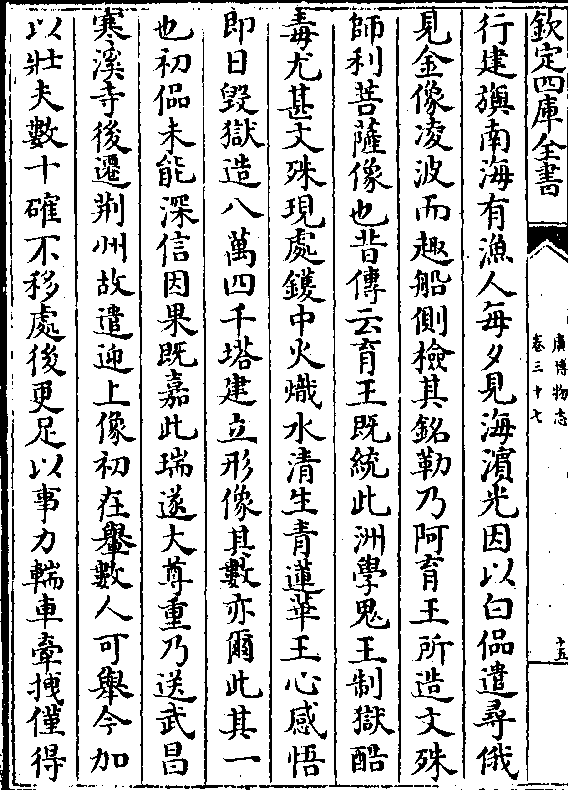 欽定四庫全書
廣博物志
卷三十七
十五
行建旟南海有漁人每夕見海濱光因以白侃遣尋俄
見金像凌波而趣船側檢其銘勒乃阿育王所造文殊
師利菩薩像也昔傳云育王既統此洲學鬼王制獄酷
毒尤甚文殊現處鑊中火熾水清生青蓮華王心感悟
即日毀獄造八萬四千塔建立形像其數亦爾此其一
也初侃未能深信因果既嘉此瑞遂大尊重乃送武昌
寒溪寺後遷荆州故遣迎上像初在轝數人可舉今加
以壯夫數十確不移處後更足以事力輲車牽拽僅得